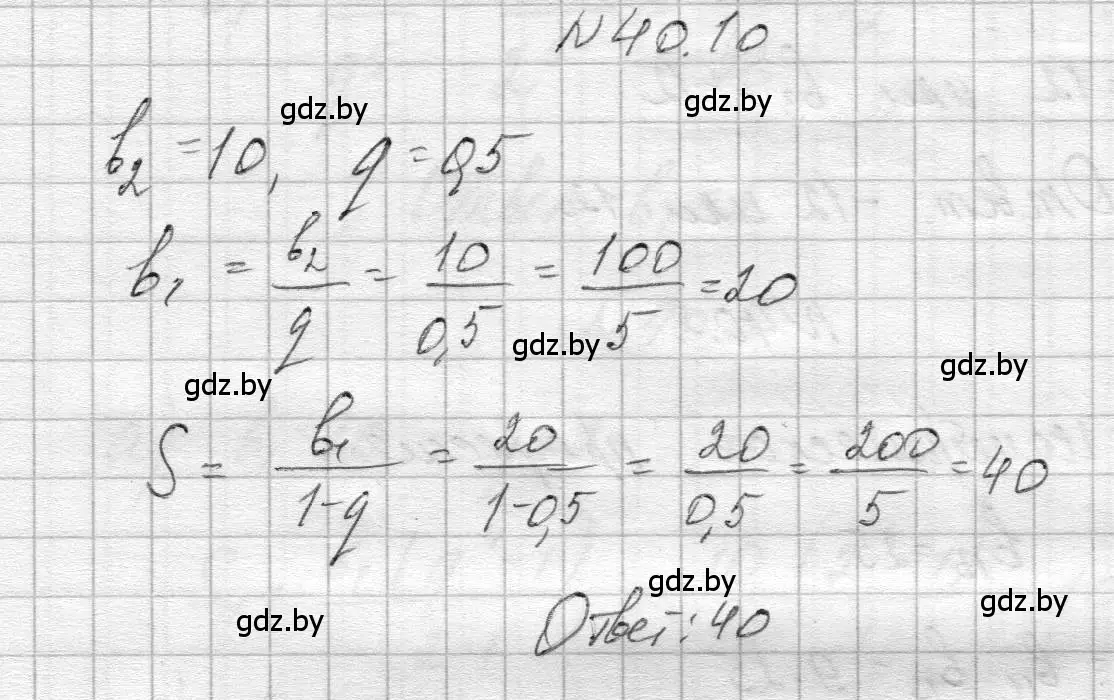 N 40.10
gdz.by gdz.by
b₂ = 10, q = 0,5
b₁ = b₂/q = 10/0,5 = 100/5 = 20
gdz.by
gdz.by gdz.by
S = b₁/(1-q) = 20/(1-0,5) = 20/0,5 = 200/5 = 40
gdz.by gdz.by
gdz.by
Ответ: 40